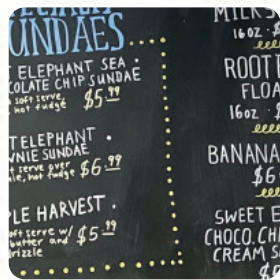 SUNDAES
ELEPHANT SEA
CHIP SUNDAE
soft serve
hot fudge $5.99
ELEPHANT
SUNDAE
serve over
hot fudge $6.99
HARVEST
soft serve w/
butter and
$5.99
MILKS
16oz
ROOT
FLOA
16oz
BANANA
$6
SWEET
CHOCO. CHI
CREAM S